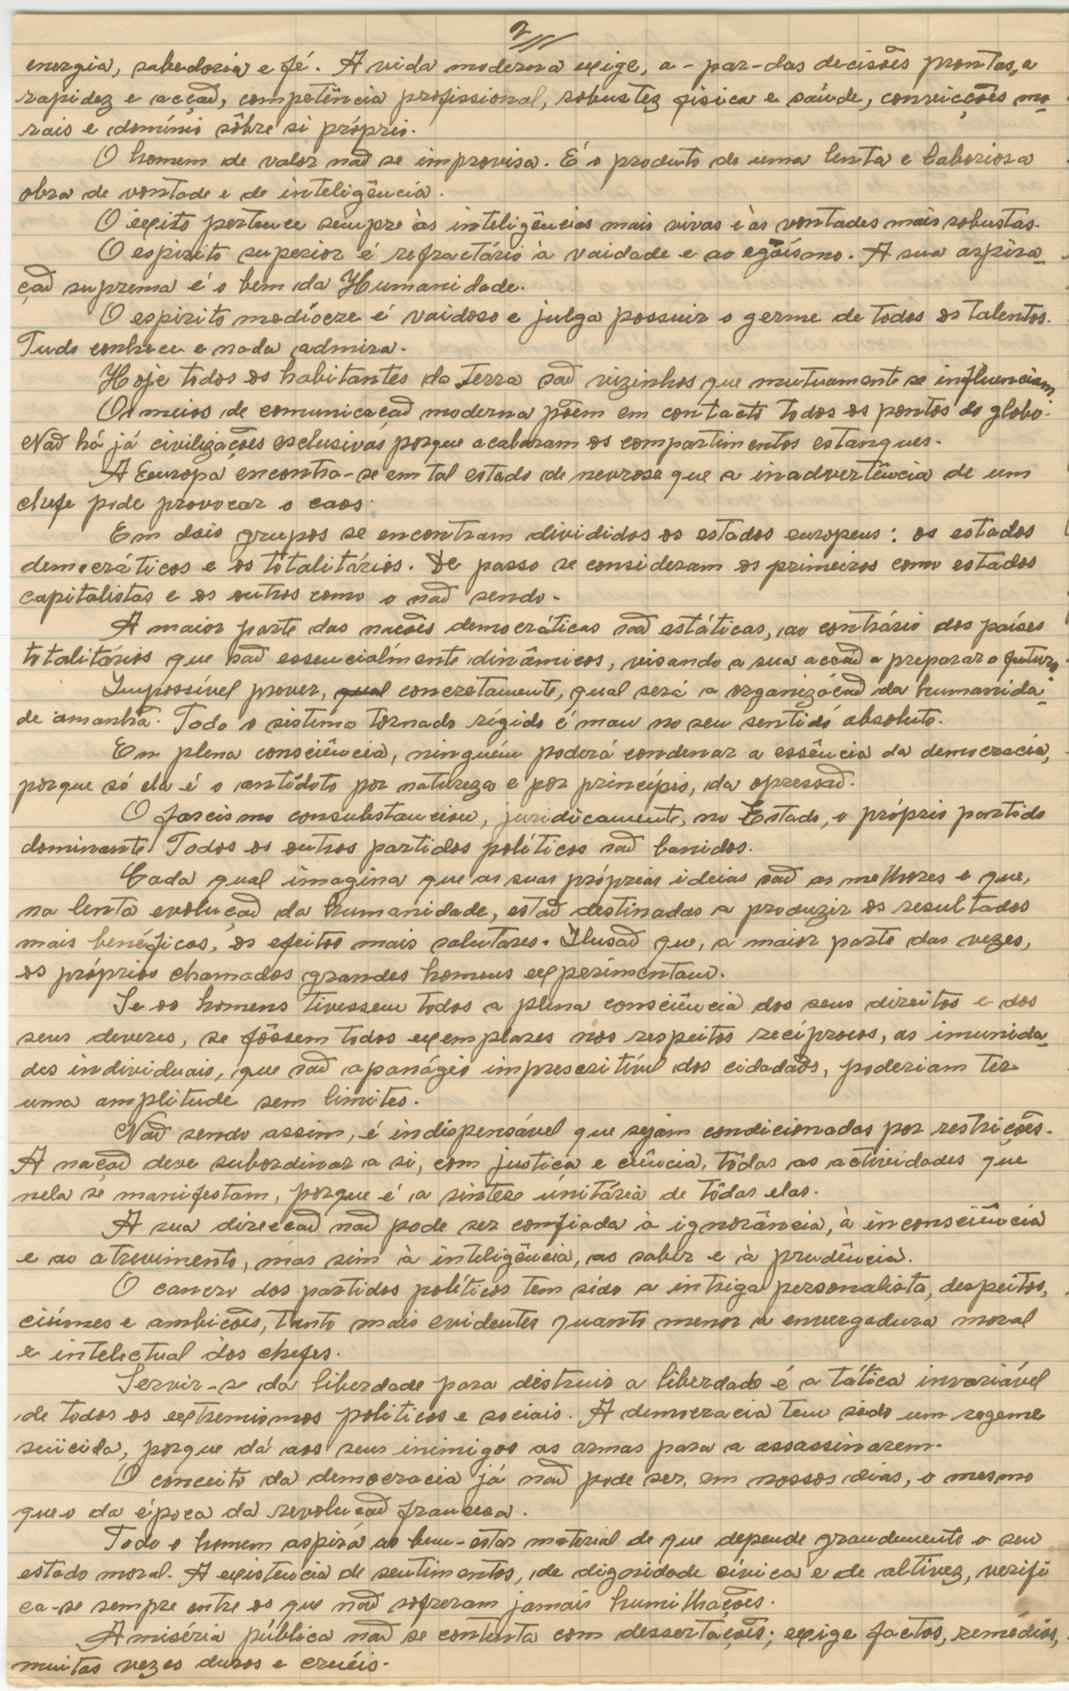 2
energia, sabedoria e fé. A vida moderna exige, a-par-das decisões prontas, a
rapidez e acção, competência profissional, robustez fisica e saúde, convicções mo-
rais e domínio sôbre si próprio.
O homem de valor não se improvisa. É o produto de uma lenta e laboriosa
obra de vontade e de inteligência.
O exito pertence sempre às inteligências mais vivas e às vontades mais robustas.
O espirito superior é refractário à vaidade e ao egoísmo. A sua aspira-
ção suprema é o bem da Humanidade.
O espirito medíocre é vaidoso e julga possuir o germe de todos os talentos.
Tudo conhece e nada admira.
Hoje todos os habitantes da Terra são vizinhos que mutuamente se influenciam.
Os meios de comunicação moderna põem em contacto todos os pontos do globo.
Não há já civilizações exclusivas porque acabaram os compartimentos estanques.
A Europa encontra-se em tal estado de nevrose que a inadvertência de um
chefe pode provocar o caos.
Em dois grupos se encontram divididos os estados europeus: os estados
democráticos e os totalitários. De passo se consideram os primeiros como estados
capitalistas e os outros como o não sendo.
A maior parte das nações democráticas são estáticas, ao contrário dos países
totalitários que são essencialmente dinâmicos, visando a sua acção a preparar o futuro.
Impossível prever, qual concretamente, qual será a organização da humanida-
de àmanhã. Todo o sistema tornado rígido é mau no seu sentido absoluto.
Em plena consciência, ninguém poderá condenar a essência da democracia,
porque só ela é o antídoto por natureza e por princípio, da opressão.
O fascismo consubstanciou, juridicamente, no Estado, o próprio partido
dominante. Todos os outros partidos políticos são banidos.
Cada qual imagina que as suas próprias ideias são as melhores e que,
na lenta evolução da humanidade, estão destinadas a produzir os resultados
mais benéficos, os efeitos mais salutares. Ilusão que, a maior parte das vezes,
os próprios chamados grandes homens experimentam.
Se os homens tivessem todos a plena consciência dos seus direitos e dos
seus deveres, se fôssem todos exemplares nos respeitos recíprocos, as imunida-
des individuais, que são apanágio imprescritível dos cidadãos, poderiam ter
uma amplitude sem limites.
Não sendo assim, é indispensável que sejam condicionadas por restrições.
A nação deve subordinar a si, com justiça e ciência, tôdas as actividades que
nela se manifestam, porque é a síntese unitária de tôdas elas.
A sua direcção não pode ser confiada à ignorância, à inconsciência
e ao atrevimento, mas sim à inteligência, ao saber e à prudência.
O cancro dos partidos políticos tem sido a intriga personalista, despeitos,
ciúmes e ambições, tanto mais evidentes quanto menor a envergadura moral
e intelectual dos chefes.
Servir-se da liberdade para destruir a liberdade é a tática invariável
de todos os extremismos políticos e sociais. A democracia tem sido um regeme
suicida, porque dá aos seus inimigos as armas para a assassinarem.
O conceito da democracia já não pode ser, em nossos dias, o mesmo
que o da época da revolução francesa.
Todo o homem aspira ao bem-estar material de que depende grandemente o seu
estado moral. A existência de sentimentos, de dignidade cívica e de altivez, verifi
ca-se sempre entre os que não sofreram jamais humilhações.
A miséria pública não se contenta com dessertações; exige factos, remédios,
muitas vezes duros e cruéis.